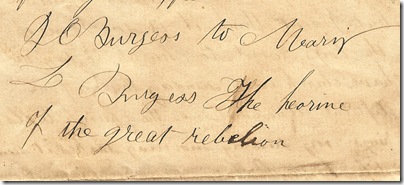 D C Burgess to Meariy
L Burgess The hearine
of the great rebelion